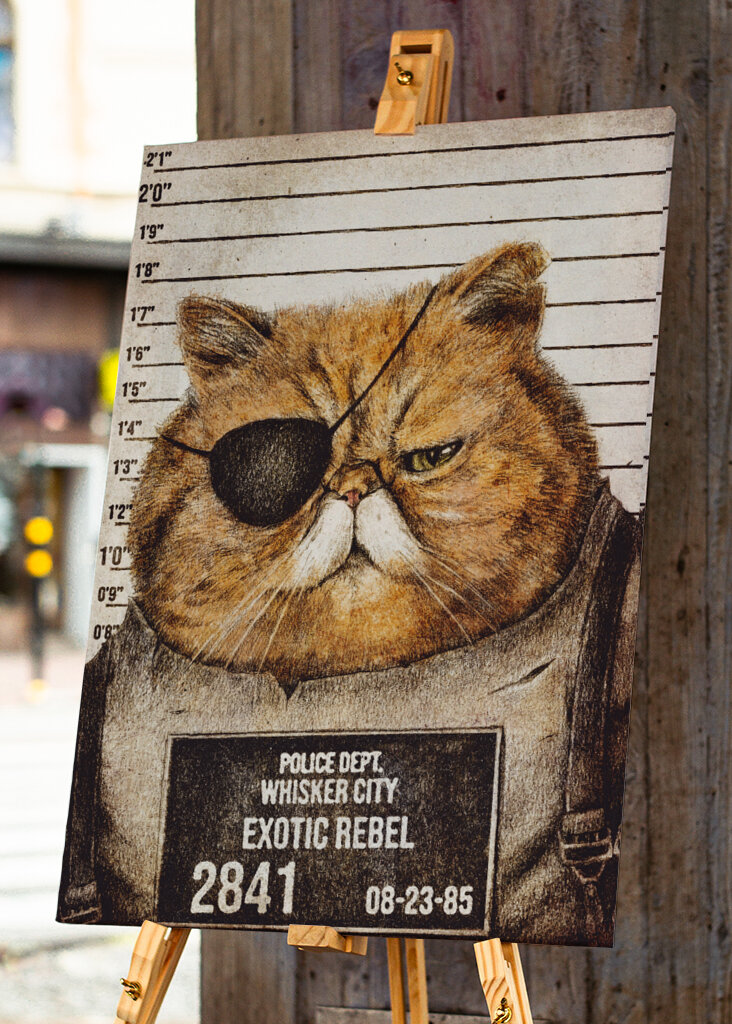 2'1"
2'0"
1'9"
1'8"
1'7"
1'6"
1'5"
1'4"
1'3"
1'2"
1'0"
0'9"
0'8"
POLICE DEPT.
WHISKER CITY
EXOTIC REBEL
2841 08-23-85